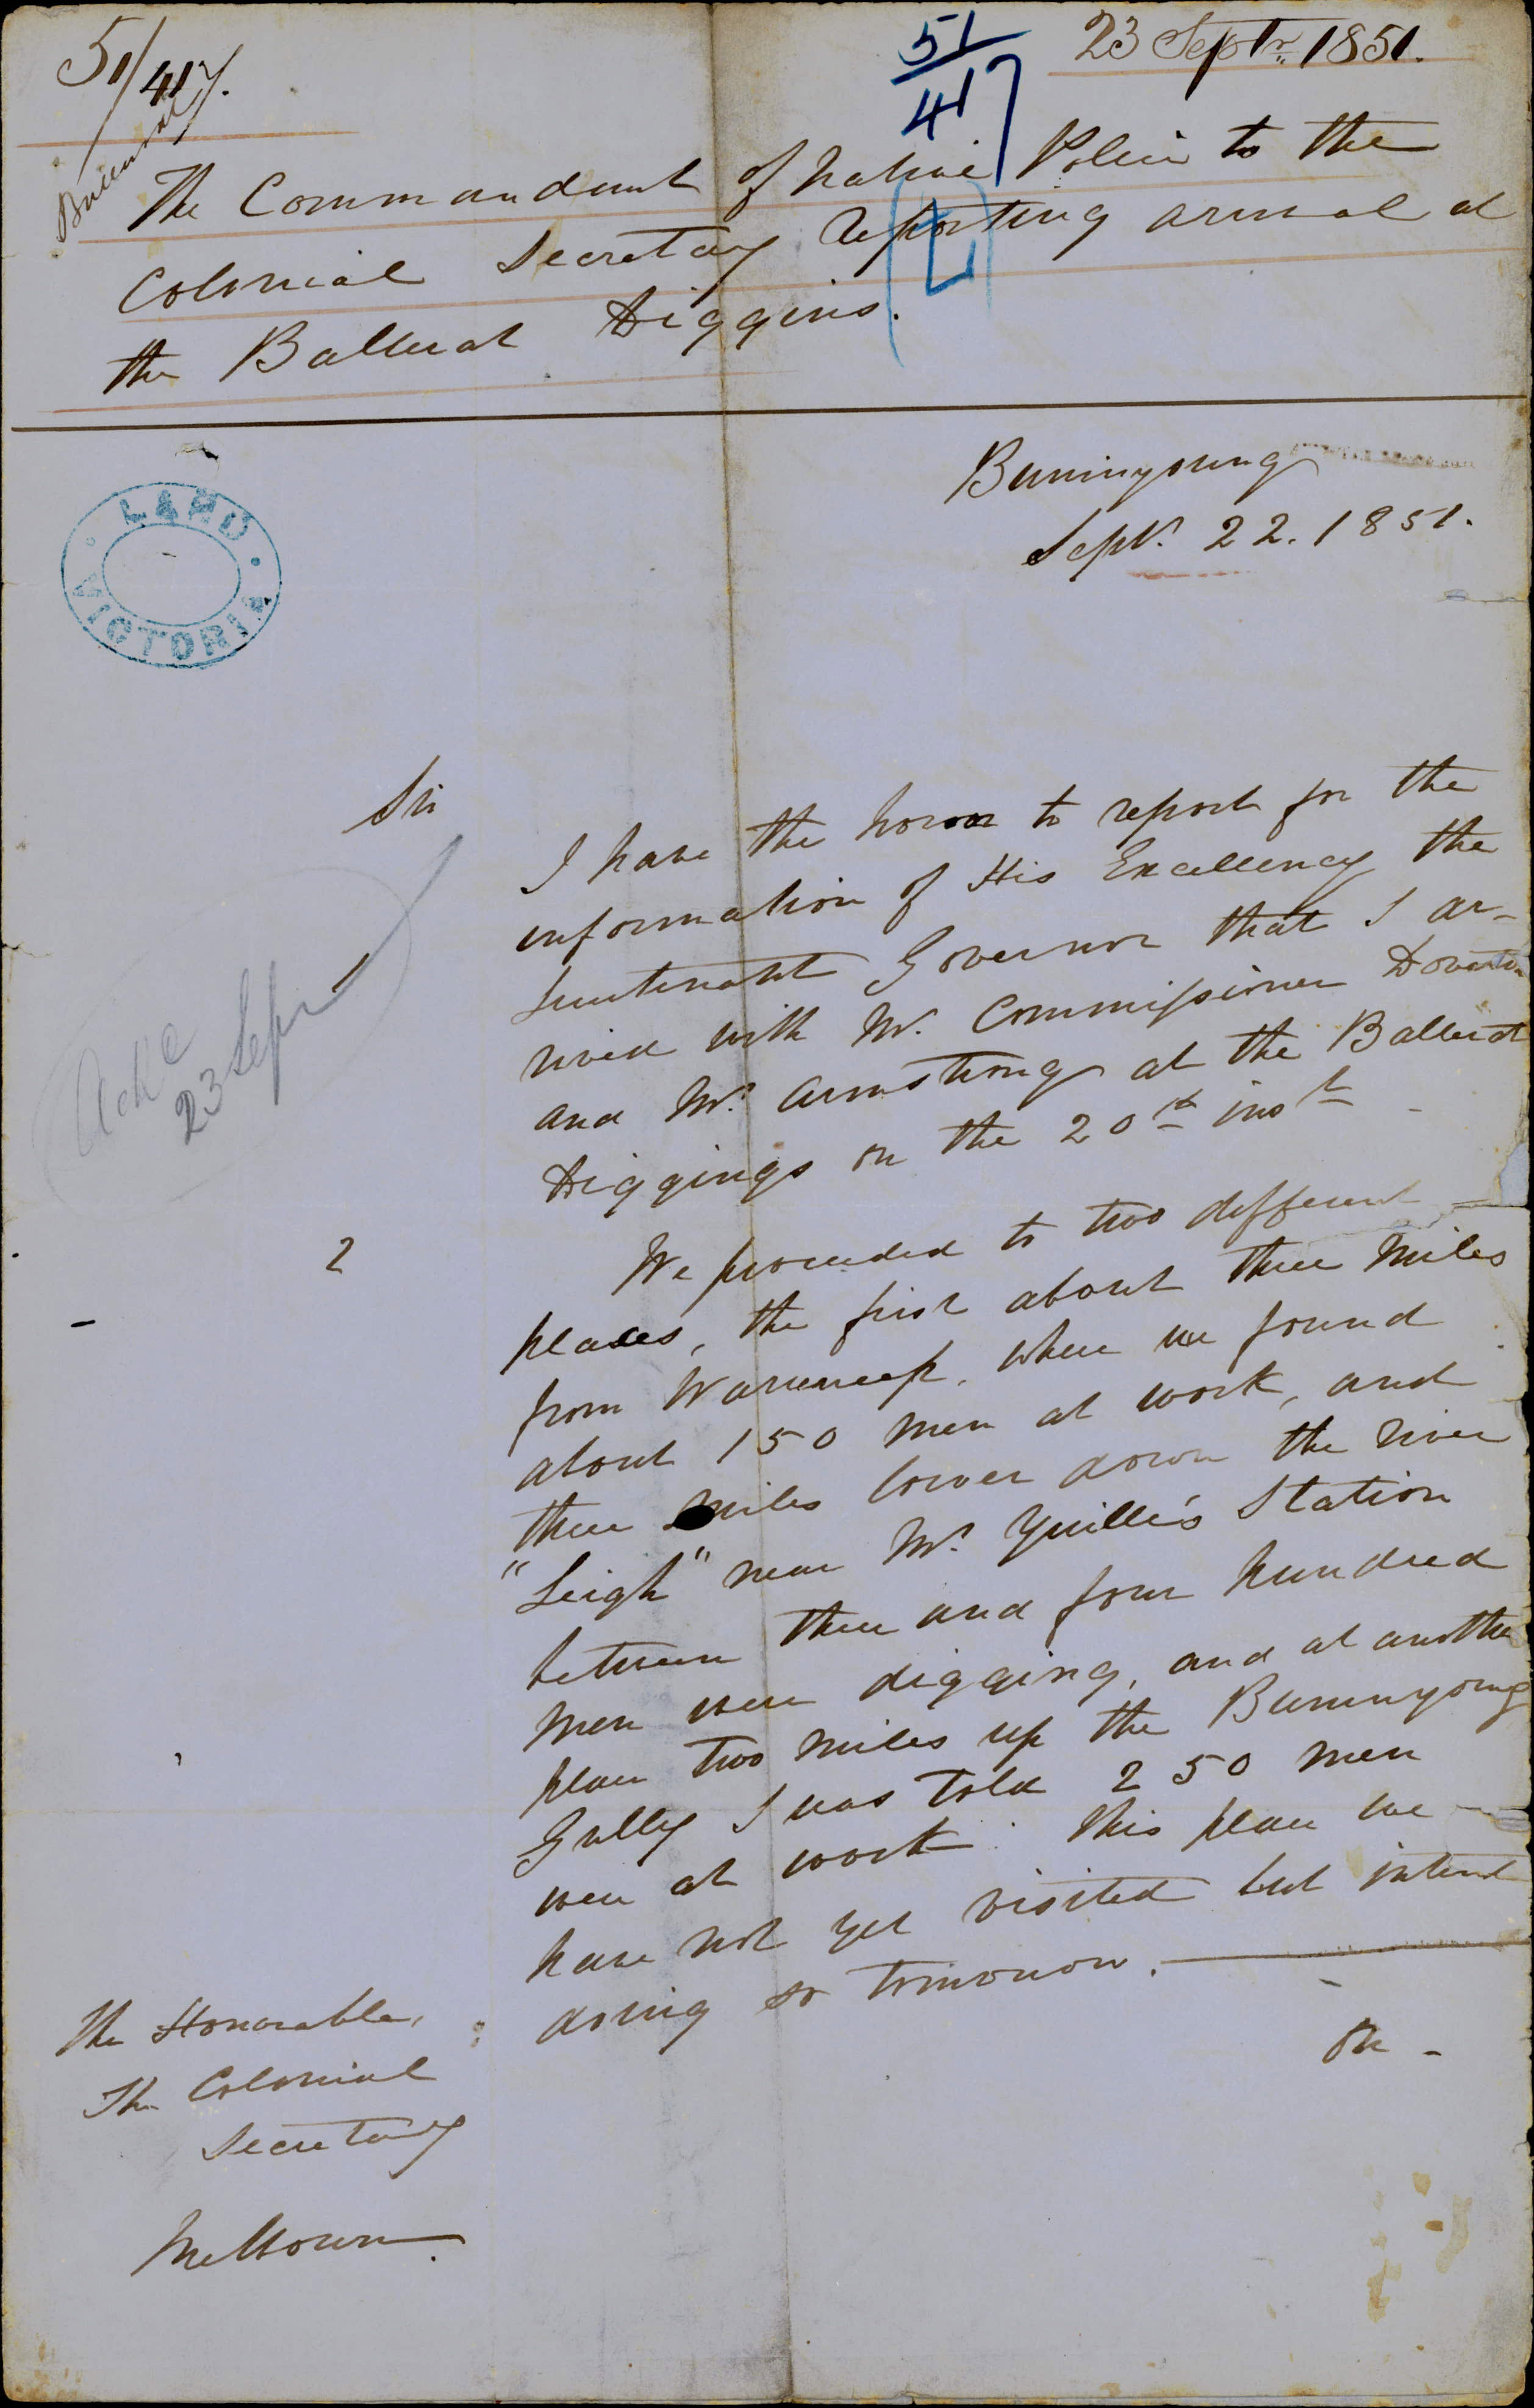 51/417.
51/417
23 Septr. 1851.
The Commandant of Native Police to the
Colonial Secretary reporting arrival at
the Ballarat Diggins.
Buninyoung
Septr. 22. 1851.
LAND
VICTORIA
Sir
I have the honor to report for the
information of His Excellency the
Lieutenant Governor that I ar-
rived with Mr. Commissioner Doveton
and Mr. Armstrong at the Ballarat
Diggings on the 20th inst
Ackd
23 Sepr
2
We proceeded to two different
places, the first about three miles
from Warreneep, where we found
about 150 men at work, and
three miles lower down the river
"Leigh" near Mr. Yuille's Station
between three and four hundred
men were digging, and at another
place two miles up the Buninyong
Gully I was told 250 men
were at work. This place we
have not yet visited but intend
doing so tomorrow.
On -
The Honorable,
The Colonial
Secretary
Melbourne.